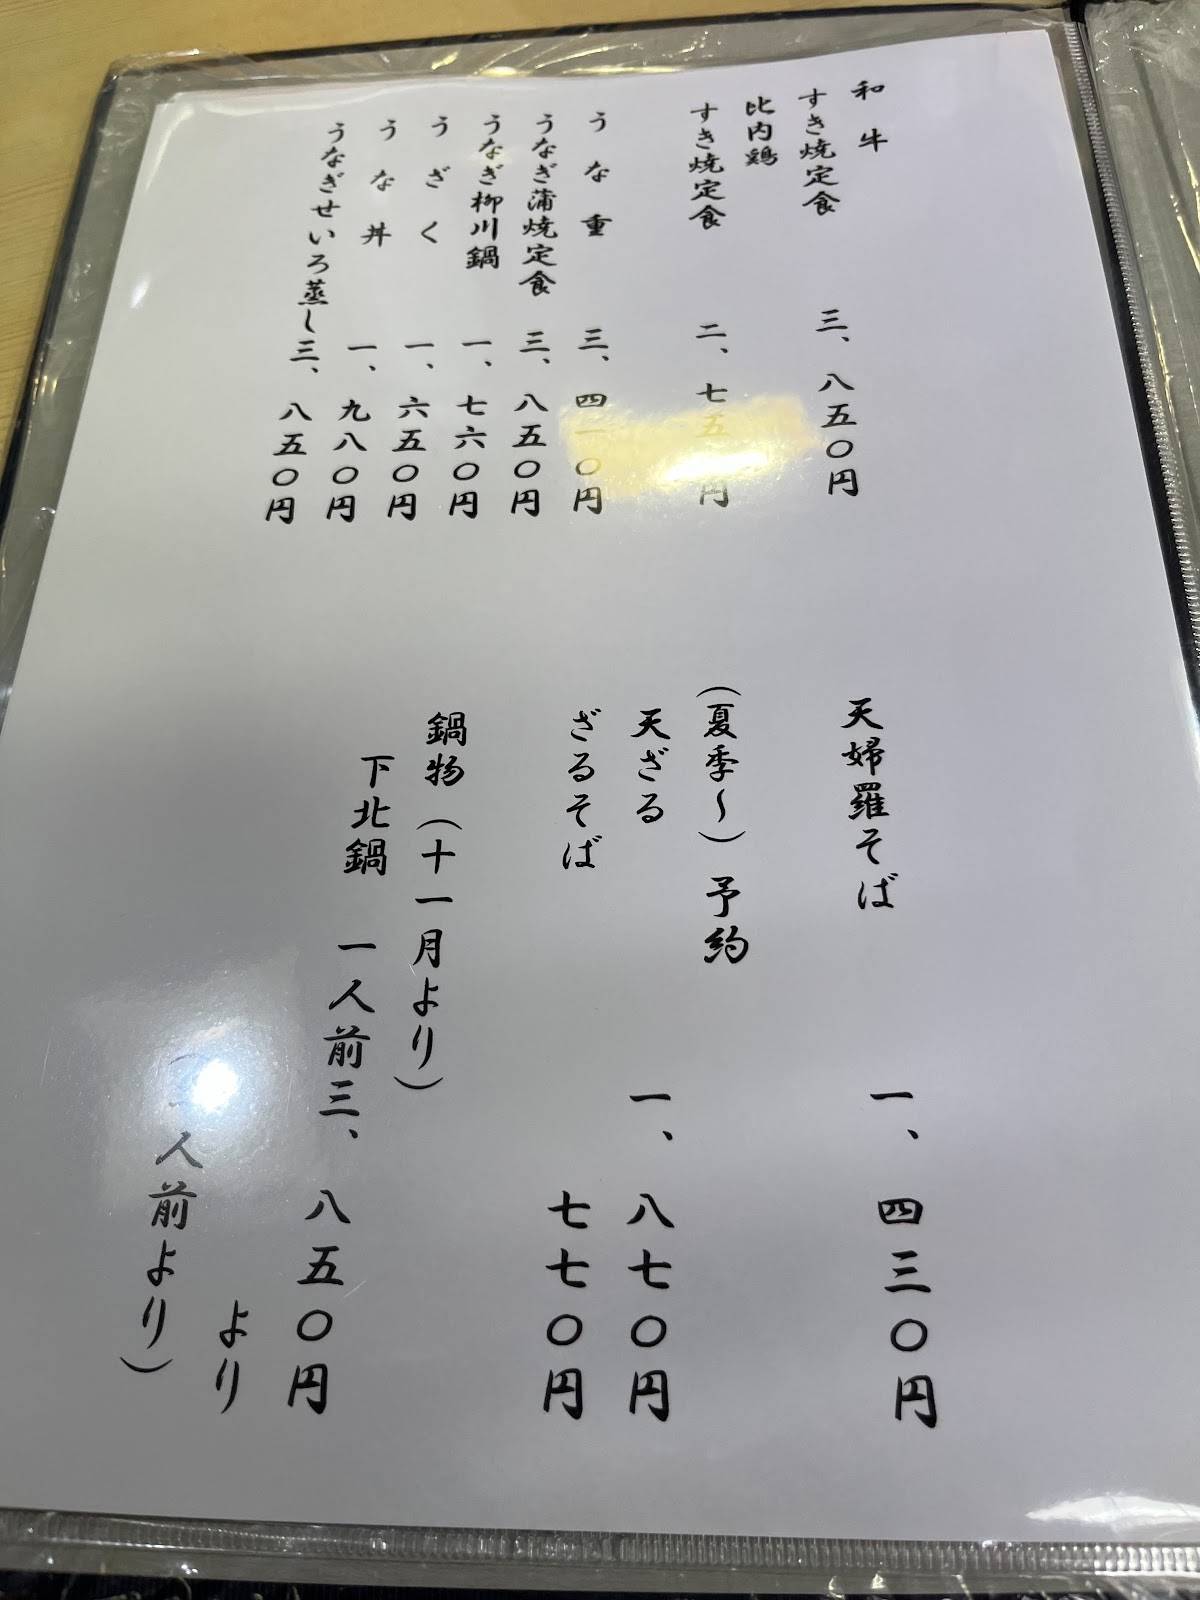 和牛
すき焼定食 三、八五〇円
比内鶏
すき焼定食 二、七五 円
うな重 三、四一〇円
うなぎ蒲焼定食 三、八五〇円
うなぎ柳川鍋 一、七六〇円
うざく 一、六五〇円
うな丼 一、九八〇円
うなぎせいろ蒸し 三、八五〇円
天婦羅そば 一、四三〇円
(夏季~)予約
天ざる 一、八七〇円
ざるそば 七七〇円
鍋物(十一月より)
下北鍋 一人前 三、八五〇円
より
人前より)